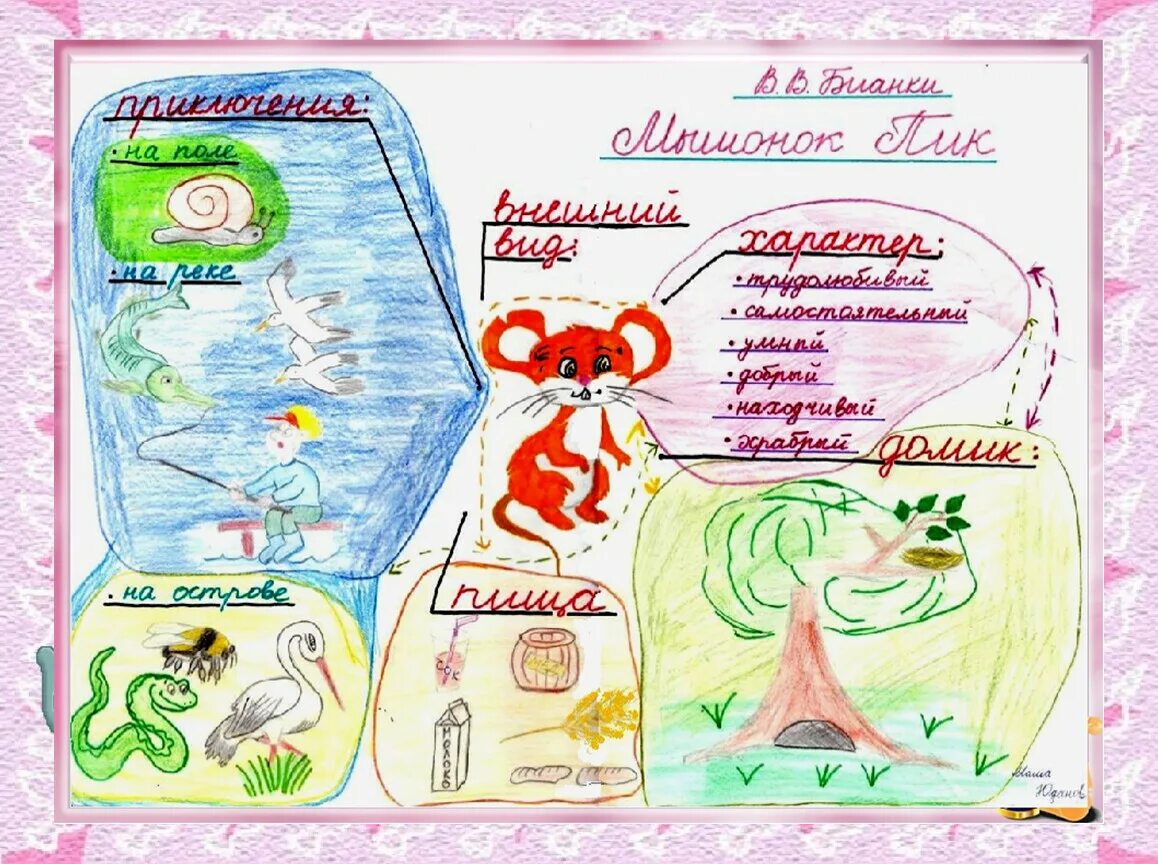 В. В. Бианки
Мышонок Пик
приключения:
• на поле
• на реке
• на острове
внешний
вид:
характер:
• трудолюбивый
• самостоятельный
• умный
• добрый
• находчивый
• храбрый
домик:
пища
сок
МОЛОКО
Маша